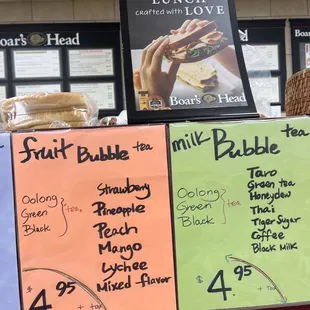 LUNCH
crafted with LOVE
Boar's Head
Boar's Head
fruit Bubble tea
Oolong
Green
Black
tea
Strawberry
Pineapple
Peach
Mango
Lychee
Mixed flavor
$4.95
+ TAX
milk Bubble tea
Oolong
Green
Black
tea
Taro
Green tea
Honeydew
Thai
Tiger Sugar
Coffee
Black Milk
$4.95
+ TAX